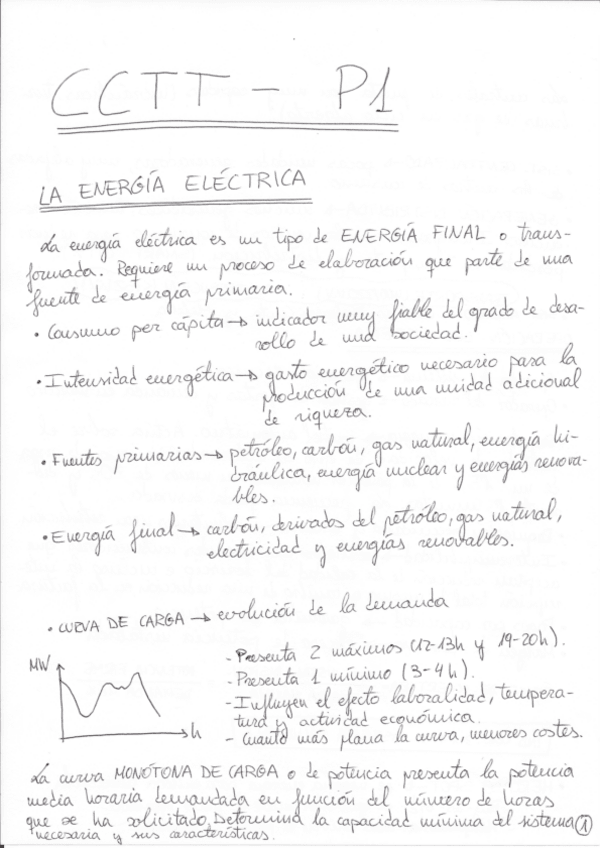 CCTT - P1
LA ENERGÍA ELÉCTRICA
La energía eléctrica es un tipo de ENERGÍA FINAL o trans-
formada. Requiere un proceso de elaboración que parte de una
fuente de energía primaria.
• Consumo per cápita → indicador muy fiable del grado de desa-
rollo de una sociedad.
• Intensidad energética → gasto energético necesario para la
producción de una unidad adicional
de riqueza.
• Fuentes primarias → petróleo, carbón, gas natural, energía hi-
dráulica, energía nuclear y energías renova-
bles.
• Energía final → carbón, derivados del petróleo, gas natural,
electricidad y energías renovables.
• CURVA DE CARGA → evolución de la demanda
- Presenta 2 máximos (12-13h y 19-20h).
MW
- Presenta 1 mínimo (3-4h).
- Influyen el efecto laboralidad, tempera-
tura y actividad económica.
h
- Cuanto más plana la curva, menores costes.
La curva MONÓTONA DE CARGA o de potencia presenta la potencia
media horaria demandada en función del número de horas
que se ha solicitado. Determina la capacidad mínima del sistema
necesaria y sus características.
1